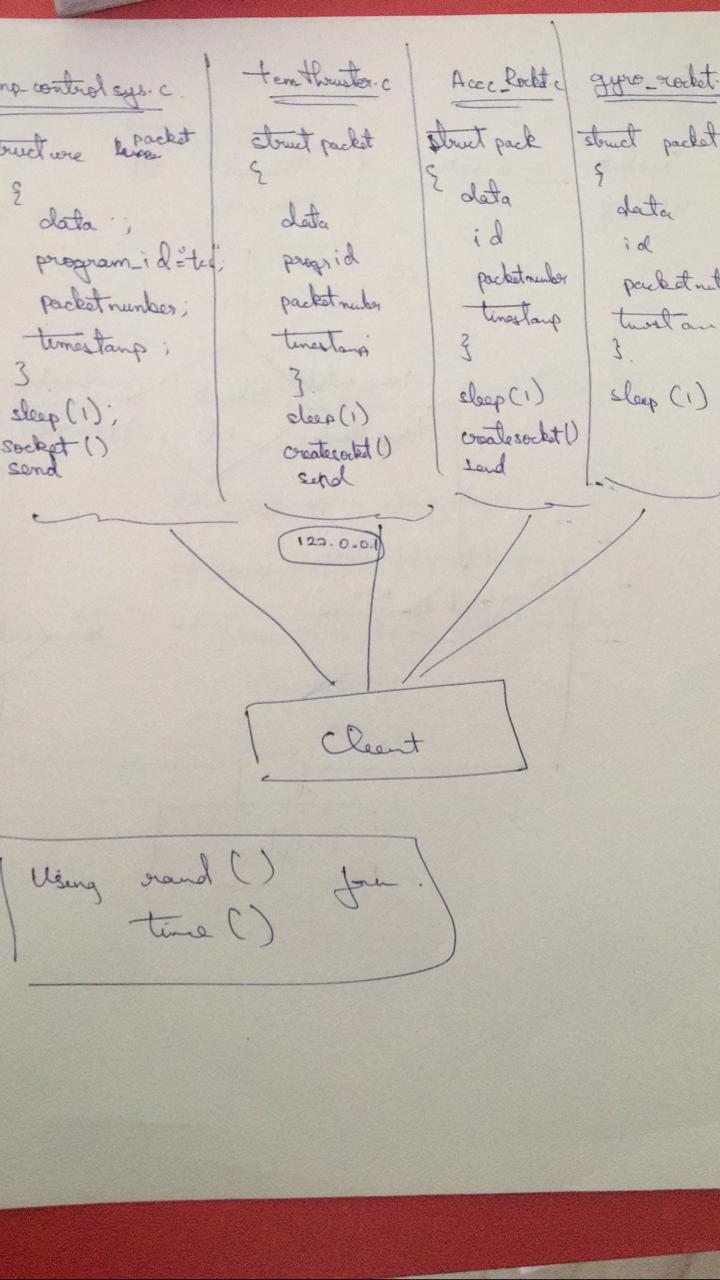 mp_control sys.c
tructure packet
{
data ;
program_id="tcs";
packet number;
timestamp ;
}
sleep(1);
socket()
send
tem thruster.c
struct packet
{
data
progrid
packet number
timestamp
}
sleep(1)
createsocket()
send
Accc_Rocket.c
struct pack
{
data
id
packetnumber
timestamp
}
sleep(1)
createsocket()
send
gyro_rocket.
struct packet
{
data
id
}.
sleep (1)
127.0.0.1
Client
Using rand ()
time ()